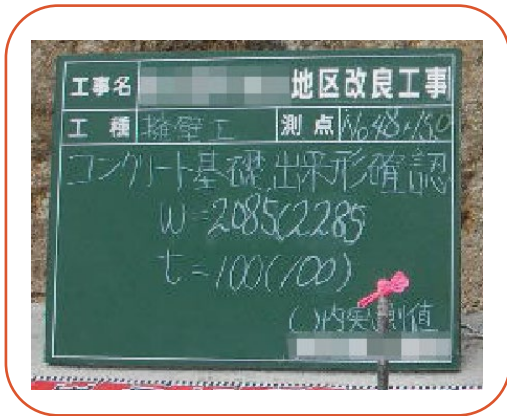 工事名 地区改良工事
工種 擁壁工 測点 No.48+15.0
コンクリート基礎 出来形確認
W=2085(2285
t=100(100)
( )内実測値